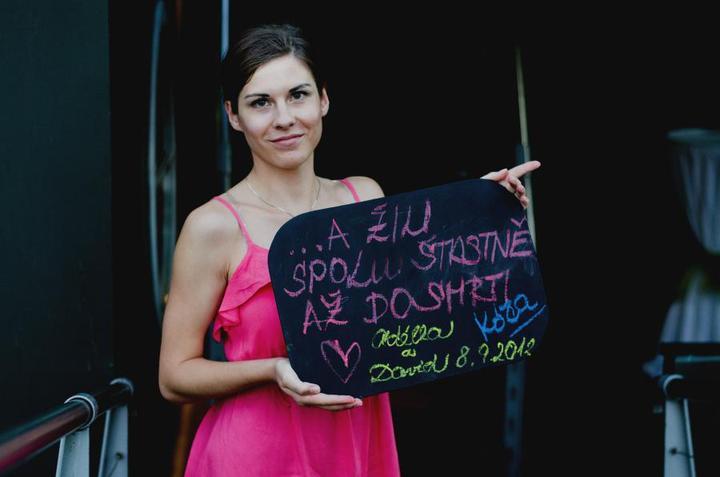 ...A ŽILI
SPOLU ŠŤASTNĚ
AŽ DO SMRTI
Kóža
Adélka
a
David 8.9.2012